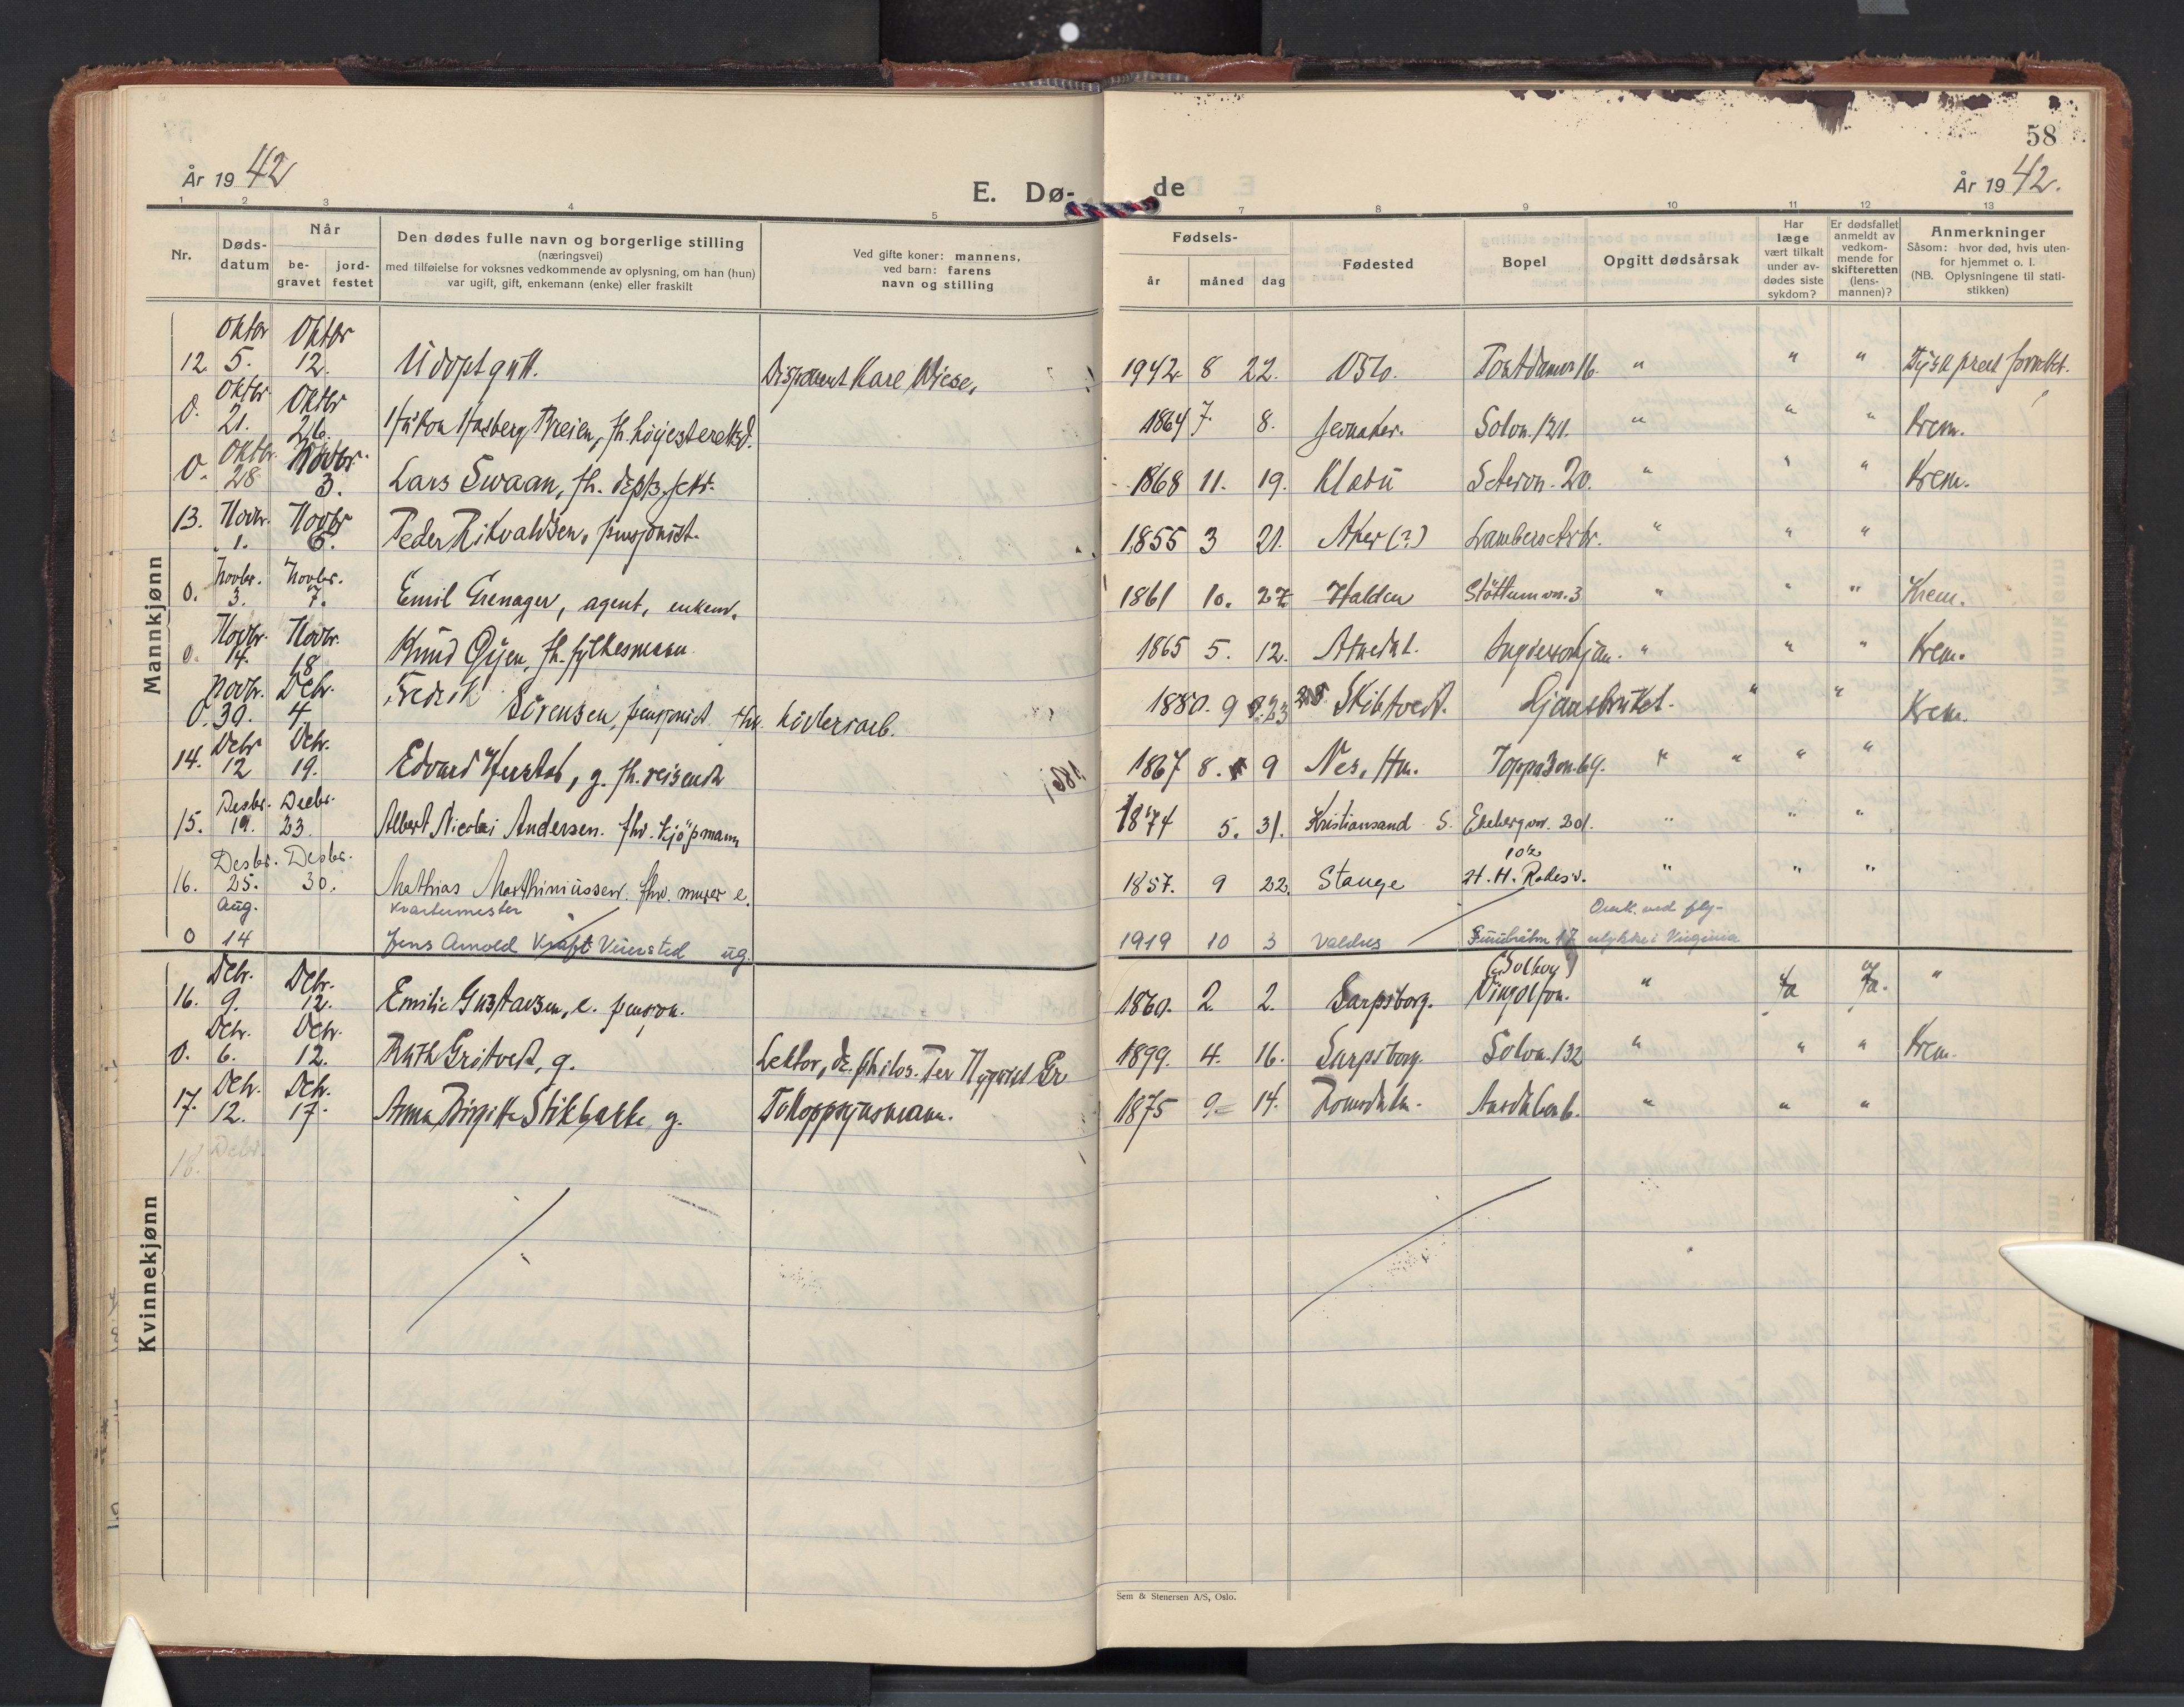 58
År 1942
E. Dø-
de
År 1942.
1 2 3 4 5 7 8 9 10 11 12 13
Nr.
Døds-
datum
Når
be-
gravet
jord-
festet
Den dødes fulle navn og borgerlige stilling
(næringsvei)
med tilføielse for voksnes vedkommende av oplysning, om han (hun)
var ugift, gift, enkemann (enke) eller fraskilt
Ved gifte koner: mannens,
ved barn: farens
navn og stilling
Fødsels-
år måned dag
Fødested
Bopel
Opgitt dødsårsak
Har
læge
vært tilkalt
under av-
dødes siste
sykdom?
Er dødsfallet
anmeldt av
vedkom-
mende for
skifteretten
(lens-
mannen)?
Anmerkninger
Såsom: hvor død, hvis uten-
for hjemmet o. l.
(NB. Oplysningene til stati-
stikken)
Mannkjønn
Oktbr Oktbr
12. 5. 12. Udøpt gutt. Disponent Kare Wiese, 1942 8 22. Oslo. " " "
Oktbr. Oktbr
0. 21. 26. Håkon Hasberg Breien, fh. 1864 7. 8. Jevnaker. Solvn. 121. " " " Krem.
Oktbr. Novbr.
0. 28 3. Lars Swaan, fh. 1868 11. 19. Klæbu Setervn. 20. " " " Krem.
13. Novbr. Novbr
1. 6. Peder Rikvaldsen, pensjonist. 1855 3 21. Aker (?) Lambersetbr. " " "
Novbr. Novbr.
0. 3. 7. Emil Grenager, agent, enkem. 1861 10. 27 Halden Støttumvn. 3 " " " Krem.
Novbr. Novbr.
0. 14. 18 Knud Øyen, fh. fylkesmann. 1865 5. 12. " " " Krem.
Novbr. Debr.
0. 30. 4. Fredrik Sörensen, pensjonist 1880. 9 23 Skibtvedt. Ljansbruket. " " Krem.
Debr Debr.
14. 12 19. Edvard g. fh. reisende 1867 8. 9 Nes, Hm. Toppåsvn. 69. " " " "
Desbr. Desbr.
15. 19. 23. Albert Nicolai Andersen. fhv. kjöpmann 1874 5. 31. Kristiansand S. Ekebergvn. 201. " " "
Desbr. Desbr. 102
16. 25. 30. Mathias Marthiniussen. fhv. murer e. 1857. 9 22. Stange H. H. " " "
Aug. Kvartermester Omk. ved fly-
0 14 Jens Arnold Kraft Veiersted ug. 1919 10 3 Valdres 17 ulykke i Virginia
Kvinnekjønn
Debr. Debr. (Solhøy)
16. 9. 12. Emilie Gustavsen, e. 1860. 2. 2. Sarpsborg. Vingolfvn. " Ja Ja. "
Debr. Debr.
0. 6. 12. Ruth Gritvedt, g. Lektor, dr. philos. Per Nyqvist Gr 1899. 4. 16. Sarpsborg Solvn. 132 " " " Krem.
Debr. Debr.
17. 12. 17. Anna Birgitte Stikbakke, g. Tolloppsynsmann. 1875 9 14. Romsdalen. " " "
18. Debr.
Sem & Stenersen A/S, Oslo.